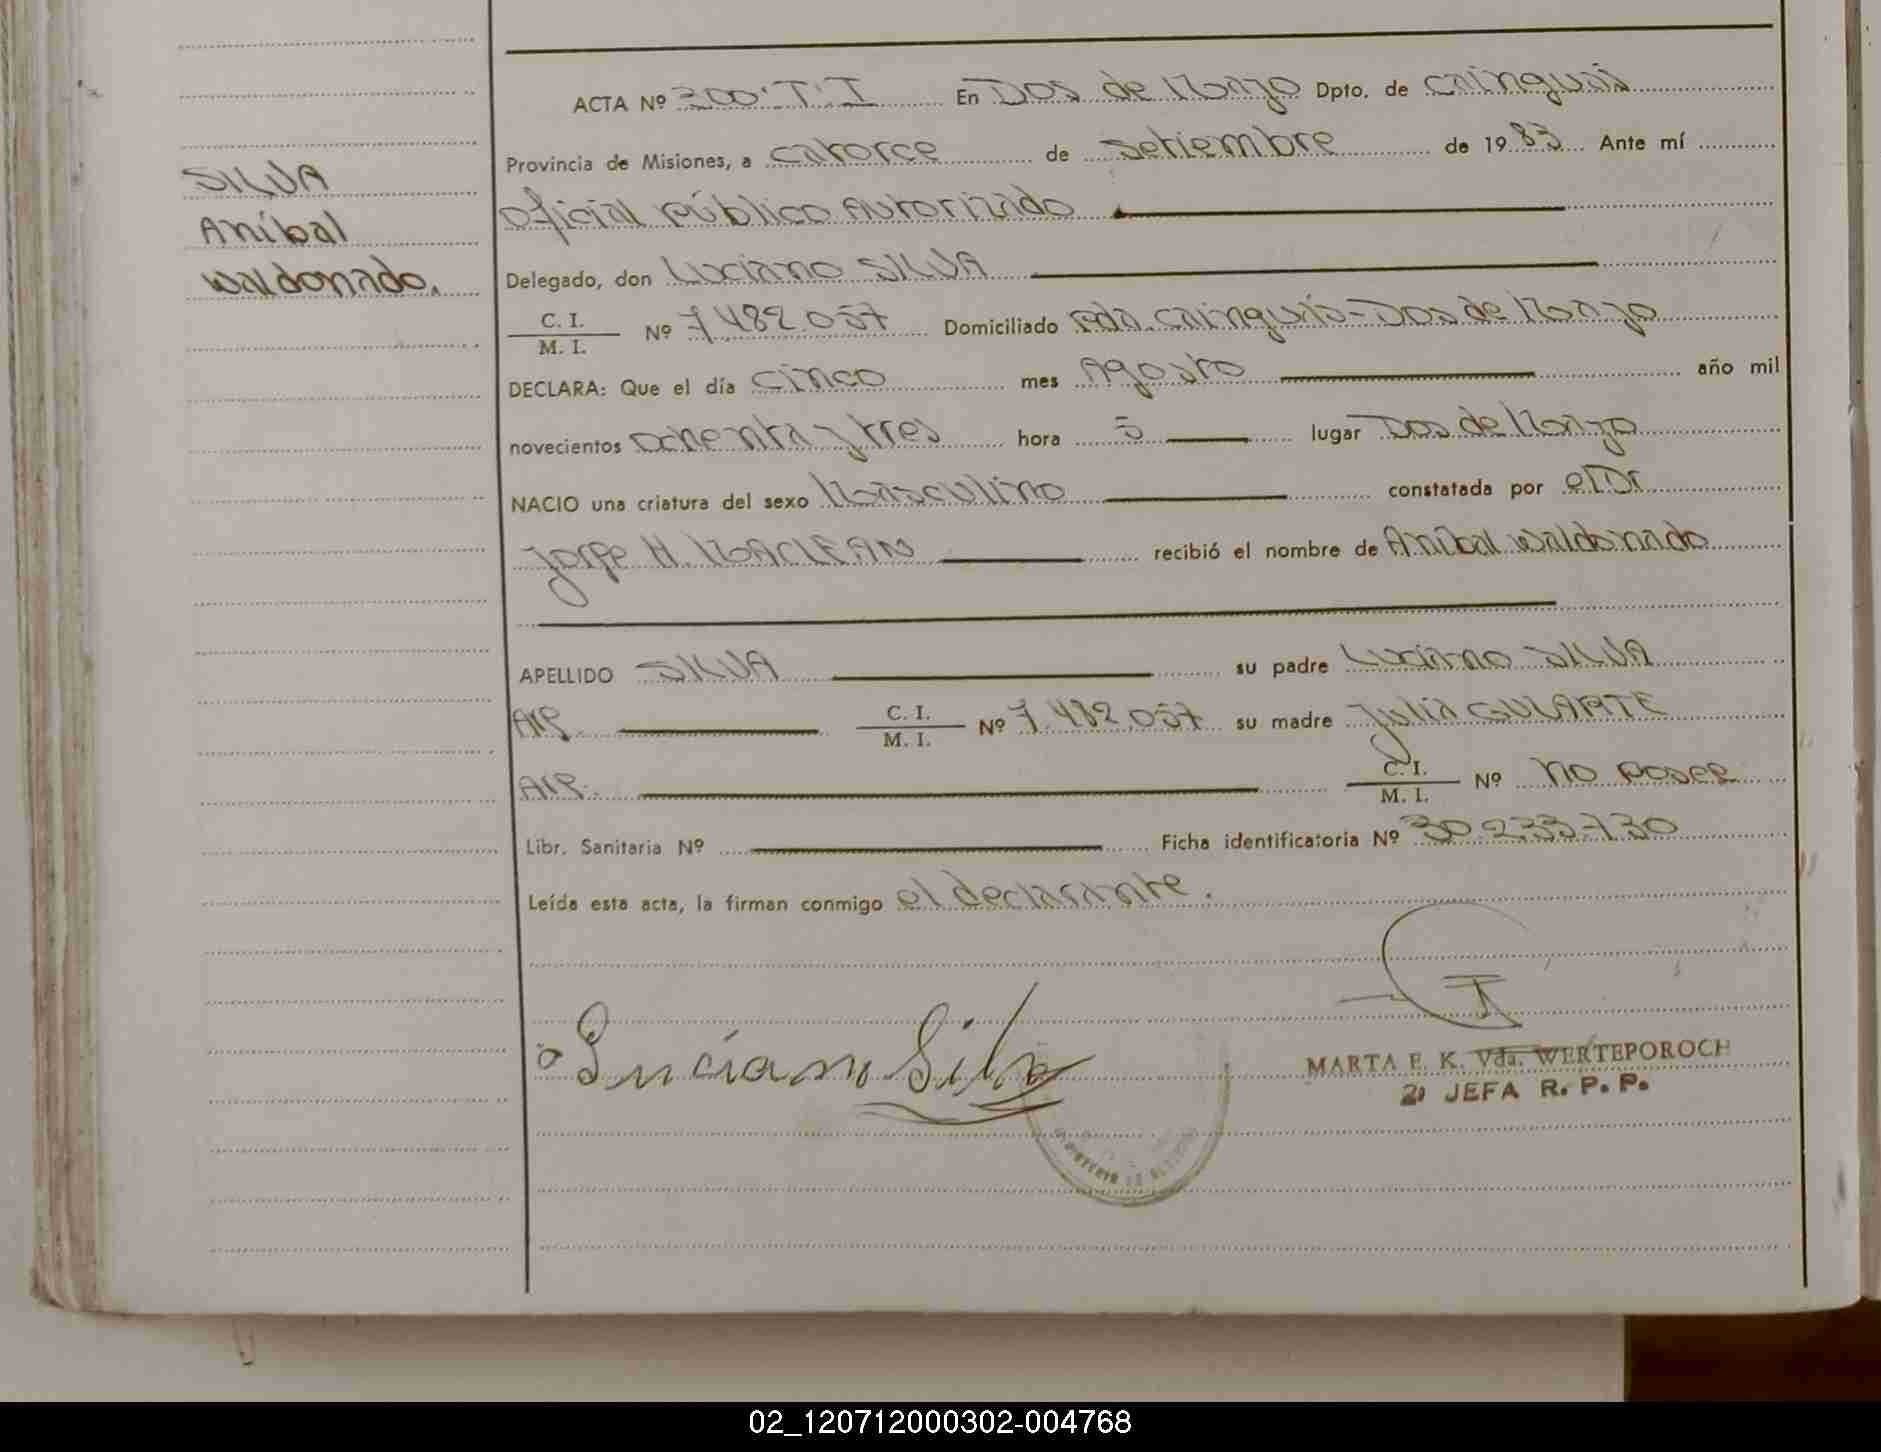 ACTA Nº 300·T·I En Dos de Mayo Dpto. de Cainguás
Provincia de Misiones, a catorce de setiembre de 1983 Ante mí
SILVA
Aníbal
Waldonado.
oficial público Autorizado
Delegado, don Luciano SILVA
C. I. / M. I. Nº 7.482.057 Domiciliado Pda. Cainguás-Dos de Mayo
DECLARA: Que el día cinco mes Agosto año mil
novecientos ochenta y tres hora 5 lugar Dos de Mayo
NACIO una criatura del sexo Masculino constatada por el Dr
Jorge H. MACLEAN recibió el nombre de Aníbal Waldonado
APELLIDO SILVA su padre Luciano SILVA
Arg. C. I. / M. I. Nº 7.482.057 su madre Julia GULARTE
Arg. C. I. / M. I. Nº no posee
Libr. Sanitaria Nº Ficha identificatoria Nº 30.233.730
Leída esta acta, la firman conmigo el declarante.
Luciano Silva
MARTA E. K. Vda. WERTEPOROCH
2ª JEFA R. P. P.
02_120712000302-004768